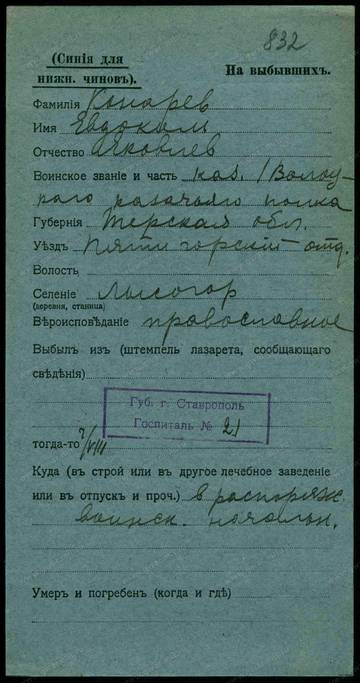 832
(Синія для
нижн. чиновъ).
На выбывшихъ.
Фамилія Конарев
Имя Евдоким
Отчество Яковлев
Воинское званіе и часть каз. 1 Волгу-
рого казачьяго полка
Губернія Терская обл.
Уѣздъ Пятигорскій отд.
Волость
Селеніе Лысогор
(деревня, станица)
Вѣроисповѣданіе православное
Выбылъ изъ (штемпель лазарета, сообщающаго
свѣдѣнія)
Губ. г. Ставрополь
Госпиталь № 21
тогда-то 7/VIII
Куда (въ строй или въ другое лечебное заведеніе
или въ отпускъ и проч.) в распоряж.
воинск. начальн.
Умеръ и погребенъ (когда и гдѣ)